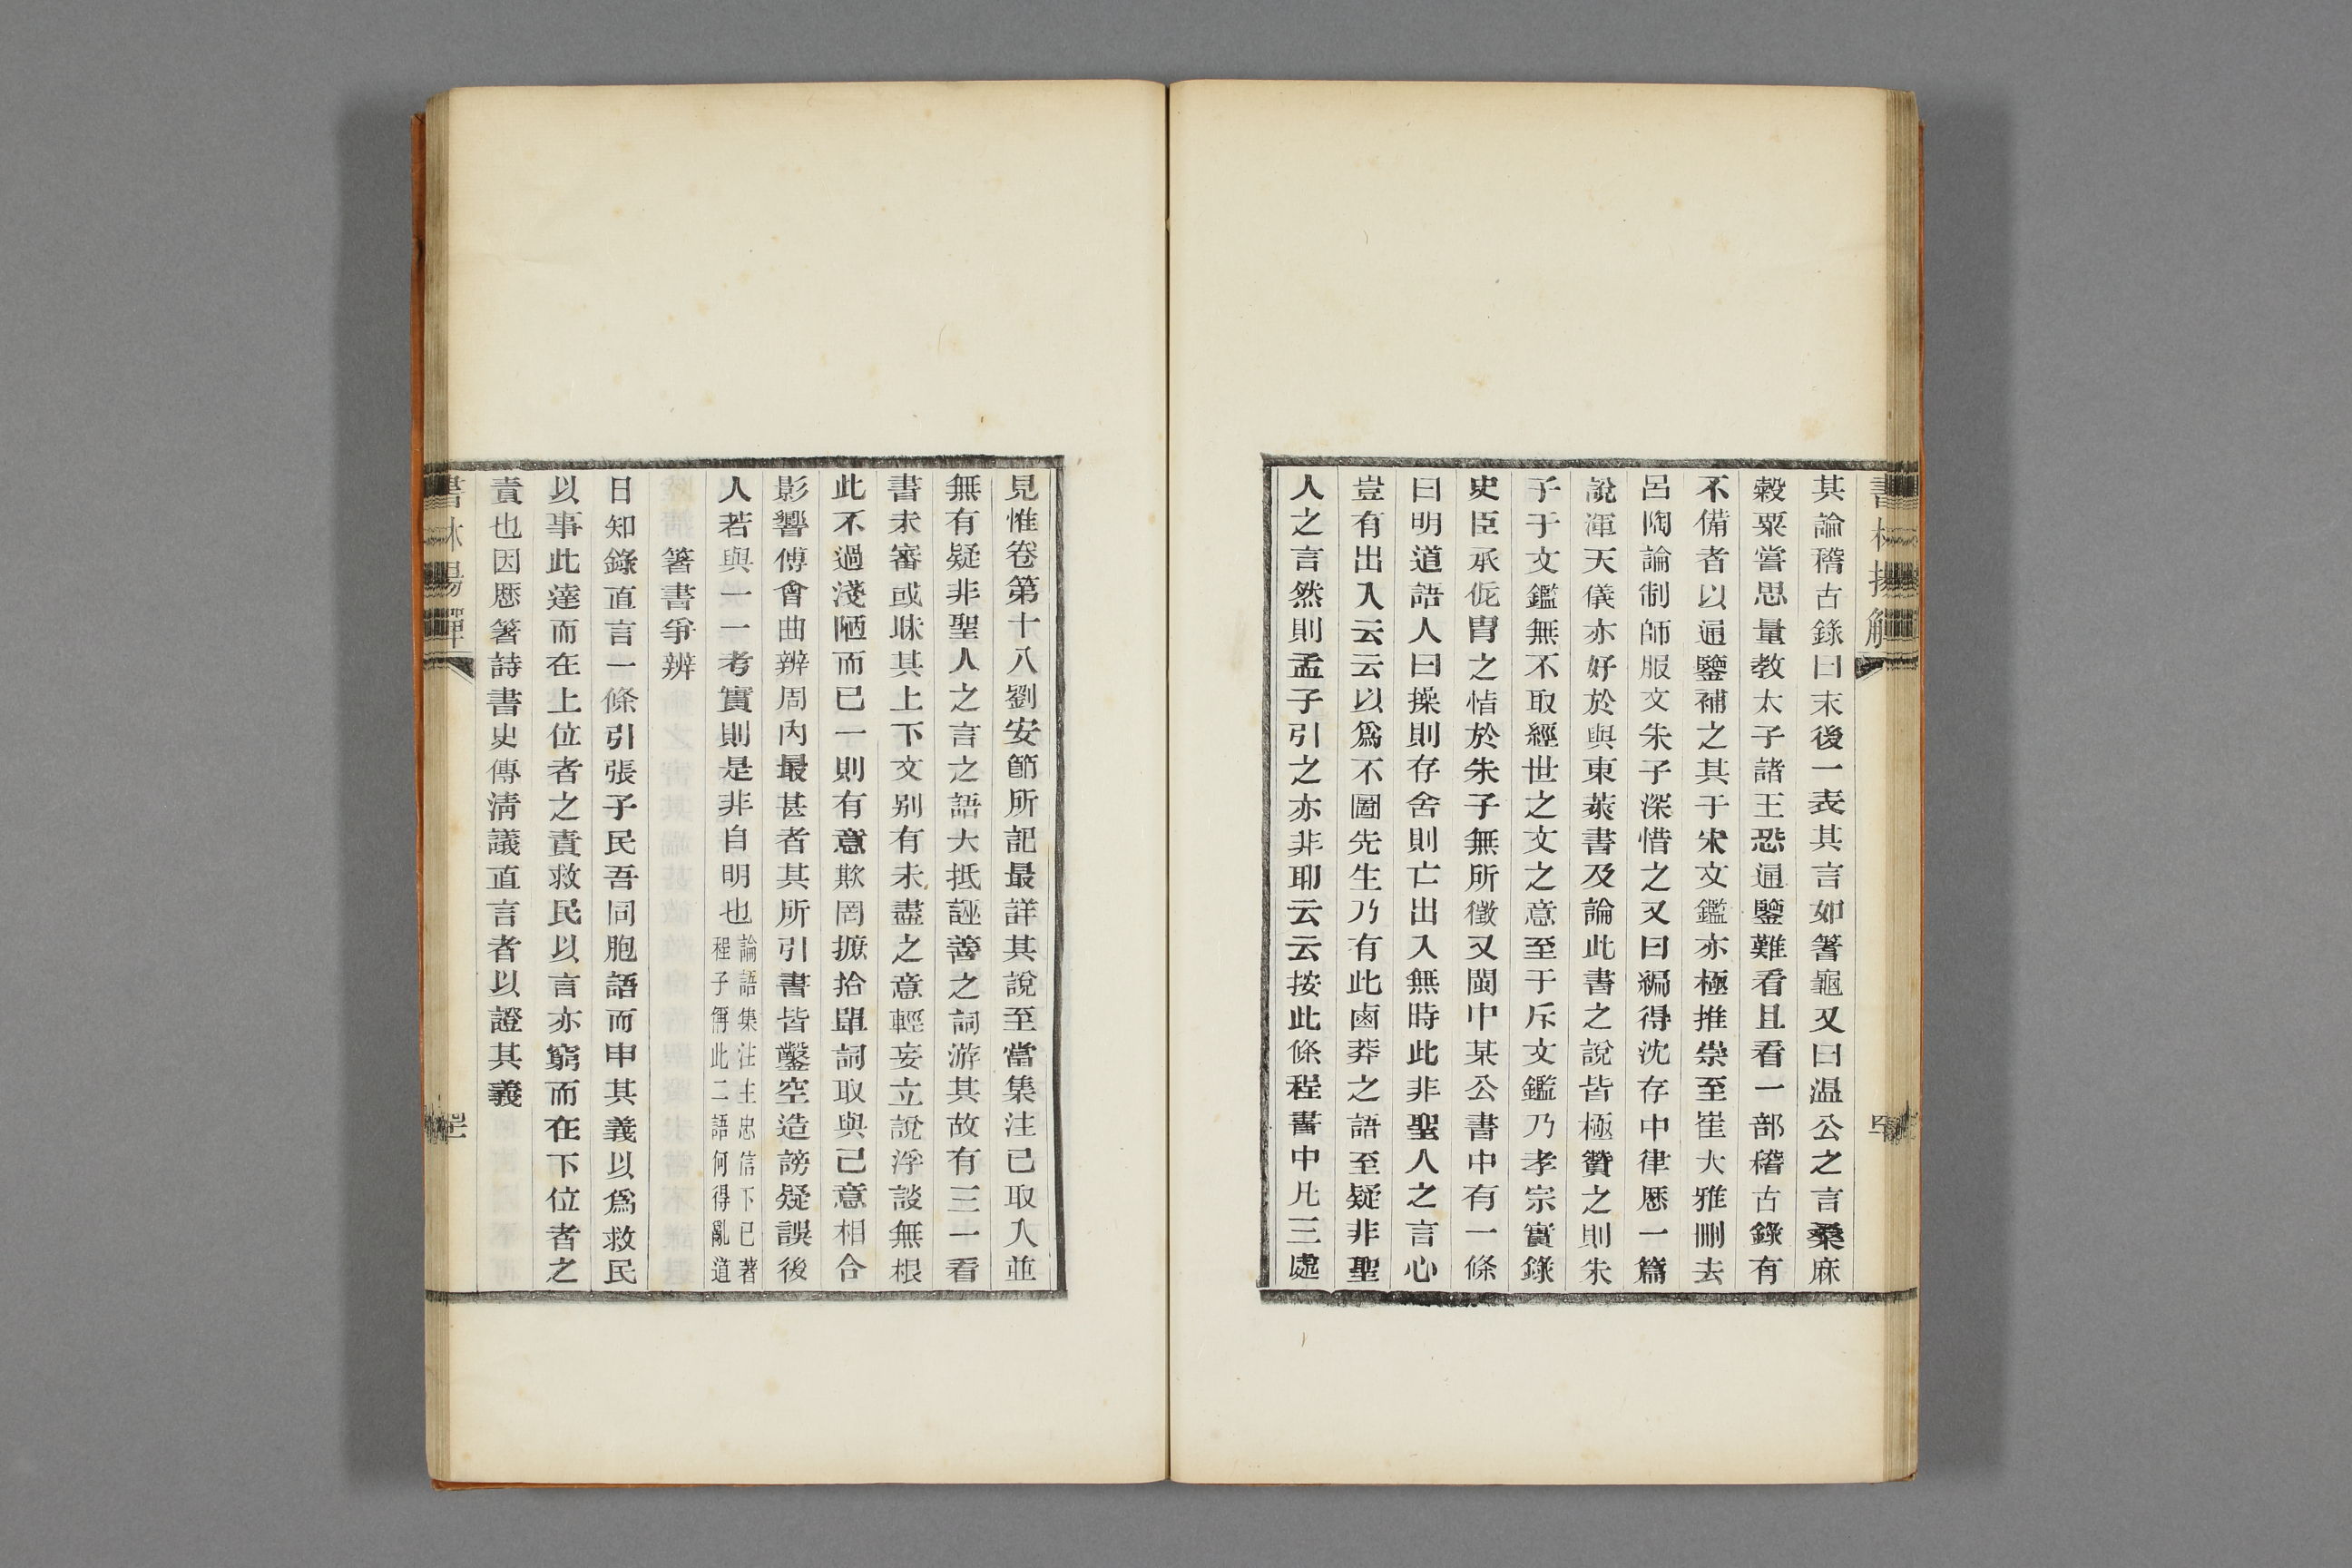 書林揚觶
其論稽古錄曰末後一表其言如蓍龜又曰温公之言桑麻
穀粟嘗思量教太子諸王恐通鑒難看且看一部稽古錄有
不備者以通鑒補之其于宋文鑑亦極推崇至崔大雅刪去
呂陶論制師服文朱子深惜之又曰編得沈存中律厯一篇
說渾天儀亦好於與東萊書及論此書之說皆極贊之則朱
子于文鑑無不取經世之文之意至于斥文鑑乃孝宗實錄
史臣承侂胄之恉於朱子無所徵又閩中某公書中有一條
曰明道語人曰操則存舍則亡出入無時此非聖人之言心
豈有出入云云以爲不圖先生乃有此鹵莽之語至疑非聖
人之言然則孟子引之亦非耶云云按此條程書中凡三處
見惟卷第十八劉安節所記最詳其說至當集注已取入並
無有疑非聖人之言之語大抵誣善之詞游其故有三一看
書未審或昧其上下文别有未盡之意輕妄立說浮談無根
此不過淺陋而已一則有意欺罔摭拾單詞取與己意相合
影響傅會曲辨周内最甚者其所引書皆鑿空造謗疑誤後
人若與一一考實則是非自明也論語集注主忠信下已著
程子傳此二語何得亂道
箸書爭辨
日知錄直言一條引張子民吾同胞語而申其義以爲救民
以事此達而在上位者之責救民以言亦窮而在下位者之
責也因厯箸詩書史傳淸議直言者以證其義
書林揚觶